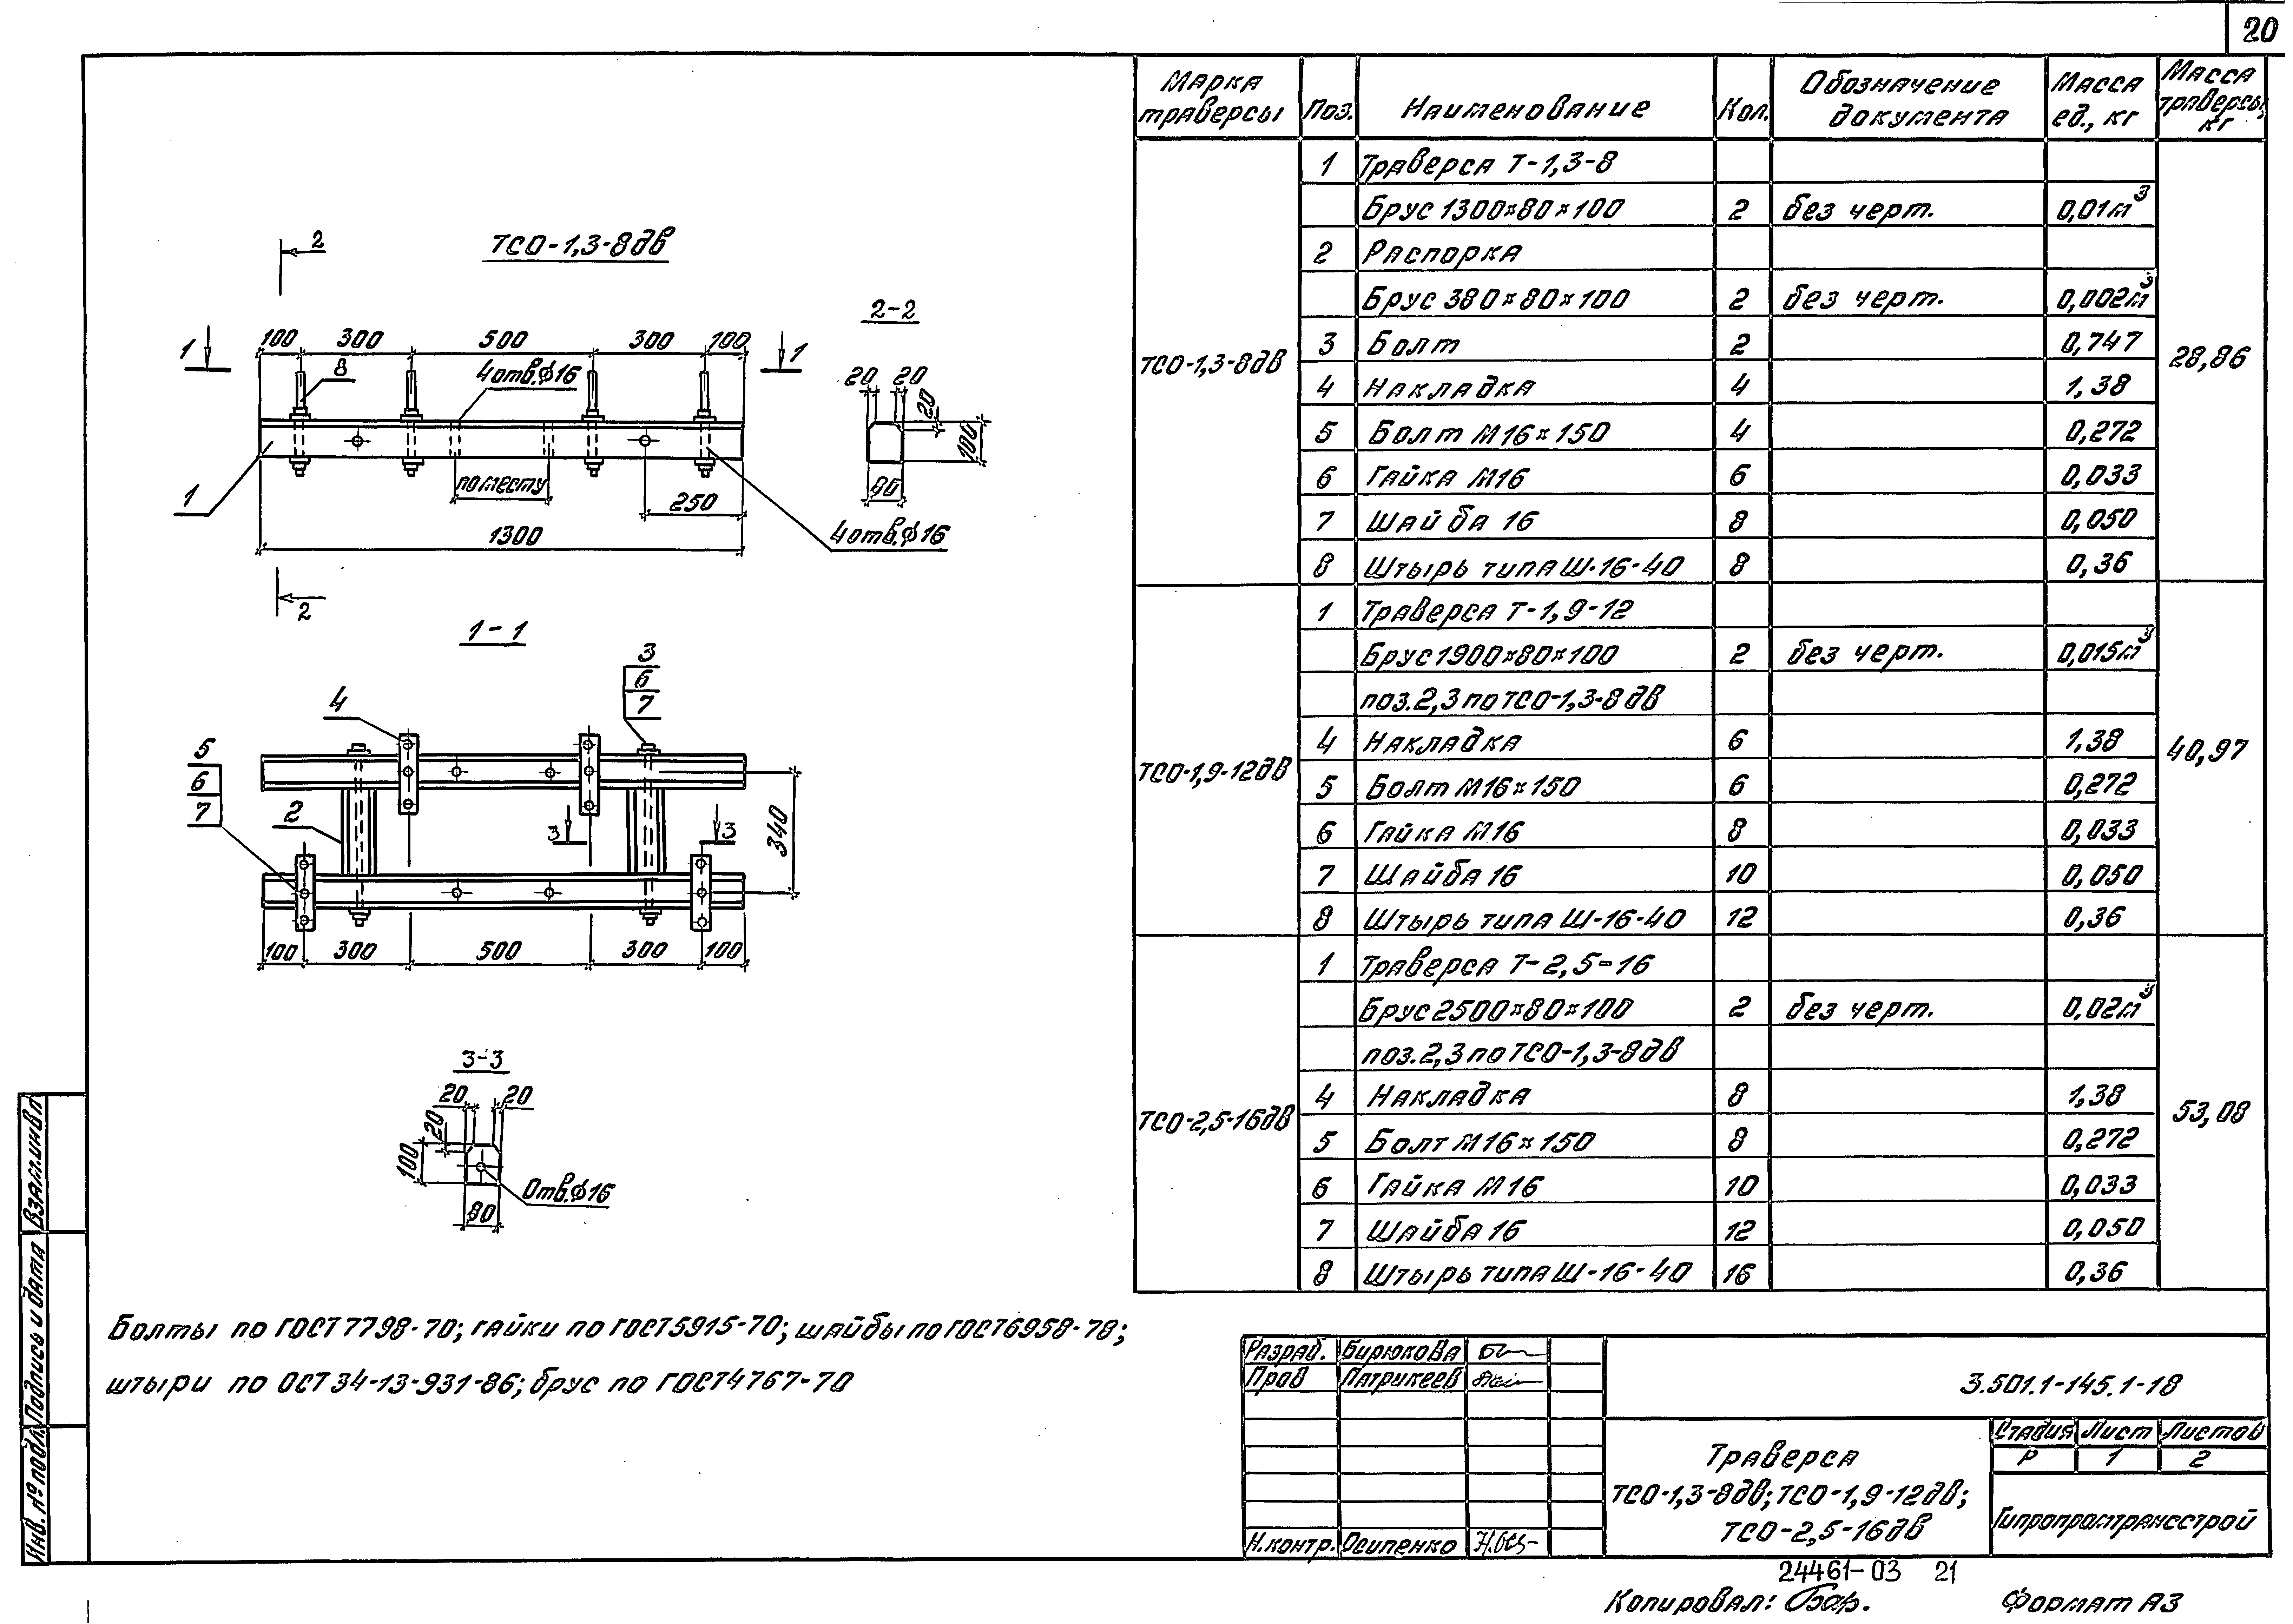 20
ТСО-1,3-8дв
2
2-2
100 300 500 300 100
1 1
8
4отв.ϕ16
20 20
20
100
80
1
по месту
250
4отв.ϕ16
1300
2
1-1
3
6
7
4
5
6
7
2
3 3
340
100 300 500 300 100
3-3
20 20
20
100
Отв.ϕ16
80
Болты по ГОСТ 7798-70; гайки по ГОСТ 5915-70; шайбы по ГОСТ 6958-78;
штыри по ОСТ 34-13-931-86; брус по ГОСТ 4767-70
Марка траверсы Поз. Наименование Кол. Обозначение документа Масса ед., кг Масса траверсы, кг
ТСО-1,3-8дв 28,86
1 Траверса Т-1,3-8
Брус 1300×80×100 2 без черт. 0,01м³
2 Распорка
Брус 380×80×100 2 без черт. 0,002м³
3 Болт 2 0,747
4 Накладка 4 1,38
5 Болт М16×150 4 0,272
6 Гайка М16 6 0,033
7 Шайба 16 8 0,050
8 Штырь типа Ш-16-40 8 0,36
ТСО-1,9-12дв 40,97
1 Траверса Т-1,9-12
Брус 1900×80×100 2 без черт. 0,015м³
поз.2,3 по ТСО-1,3-8дв
4 Накладка 6 1,38
5 Болт М16×150 6 0,272
6 Гайка М16 8 0,033
7 Шайба 16 10 0,050
8 Штырь типа Ш-16-40 12 0,36
ТСО-2,5-16дв 53,08
1 Траверса Т-2,5-16
Брус 2500×80×100 2 без черт. 0,02м³
поз.2,3 по ТСО-1,3-8дв
4 Накладка 8 1,38
5 Болт М16×150 8 0,272
6 Гайка М16 10 0,033
7 Шайба 16 12 0,050
8 Штырь типа Ш-16-40 16 0,36
Разраб. Бирюкова
Пров Патрикеев
Н.контр. Осипенко
3.501.1-145.1-18
Траверса
ТСО-1,3-8дв; ТСО-1,9-12дв;
ТСО-2,5-16дв
Стадия Лист Листов
Р 1 2
Гипропромтрансстрой
24461-03 21
Копировал: Формат А3
Взам.инв.п
Подпись и дата
Инв. № подл.